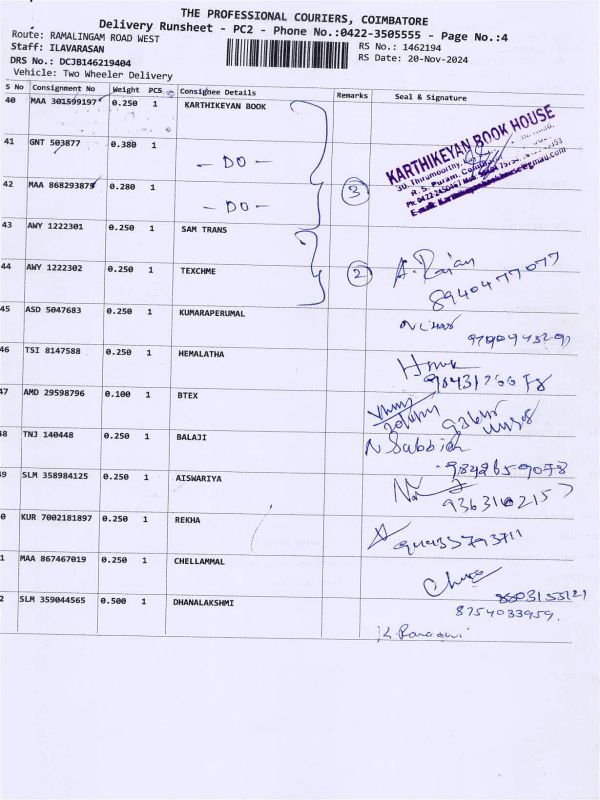 THE PROFESSIONAL COURIERS, COIMBATORE
Delivery Runsheet - PC2 - Phone No.:0422-3505555 - Page No.:4
Route: RAMALINGAM ROAD WEST
Staff: ILAVARASAN
RS No.: 1462194
DRS No.: DCJB146219404
RS Date: 20-Nov-2024
Vehicle: Two Wheeler Delivery
S No Consignment No Weight PCS Consignee Details Remarks Seal & Signature
40 MAA 301599197 0.250 1 KARTHIKEYAN BOOK
KARTHIKEYAN BOOK HOUSE
R. S. Puram,
41 GNT 503877 0.380 1 - DO -
42 MAA 868293875 0.280 1 - DO - 3
43 AWY 1222301 0.250 1 SAM TRANS
44 AWY 1222302 0.250 1 TEXCHME 2 A. Rajan
8940477077
45 ASD 5047683 0.250 1 KUMARAPERUMAL
46 TSI 8147588 0.250 1 HEMALATHA
47 AMD 29598796 0.100 1 BTEX
48 TNJ 140448 0.250 1 BALAJI N Sabbiah
9842659078
49 SLM 358984125 0.250 1 AISWARIYA
0 KUR 7002181897 0.250 1 REKHA
1 MAA 867467019 0.250 1 CHELLAMMAL
2 SLM 359044565 0.500 1 DHANALAKSHMI 8754033959.